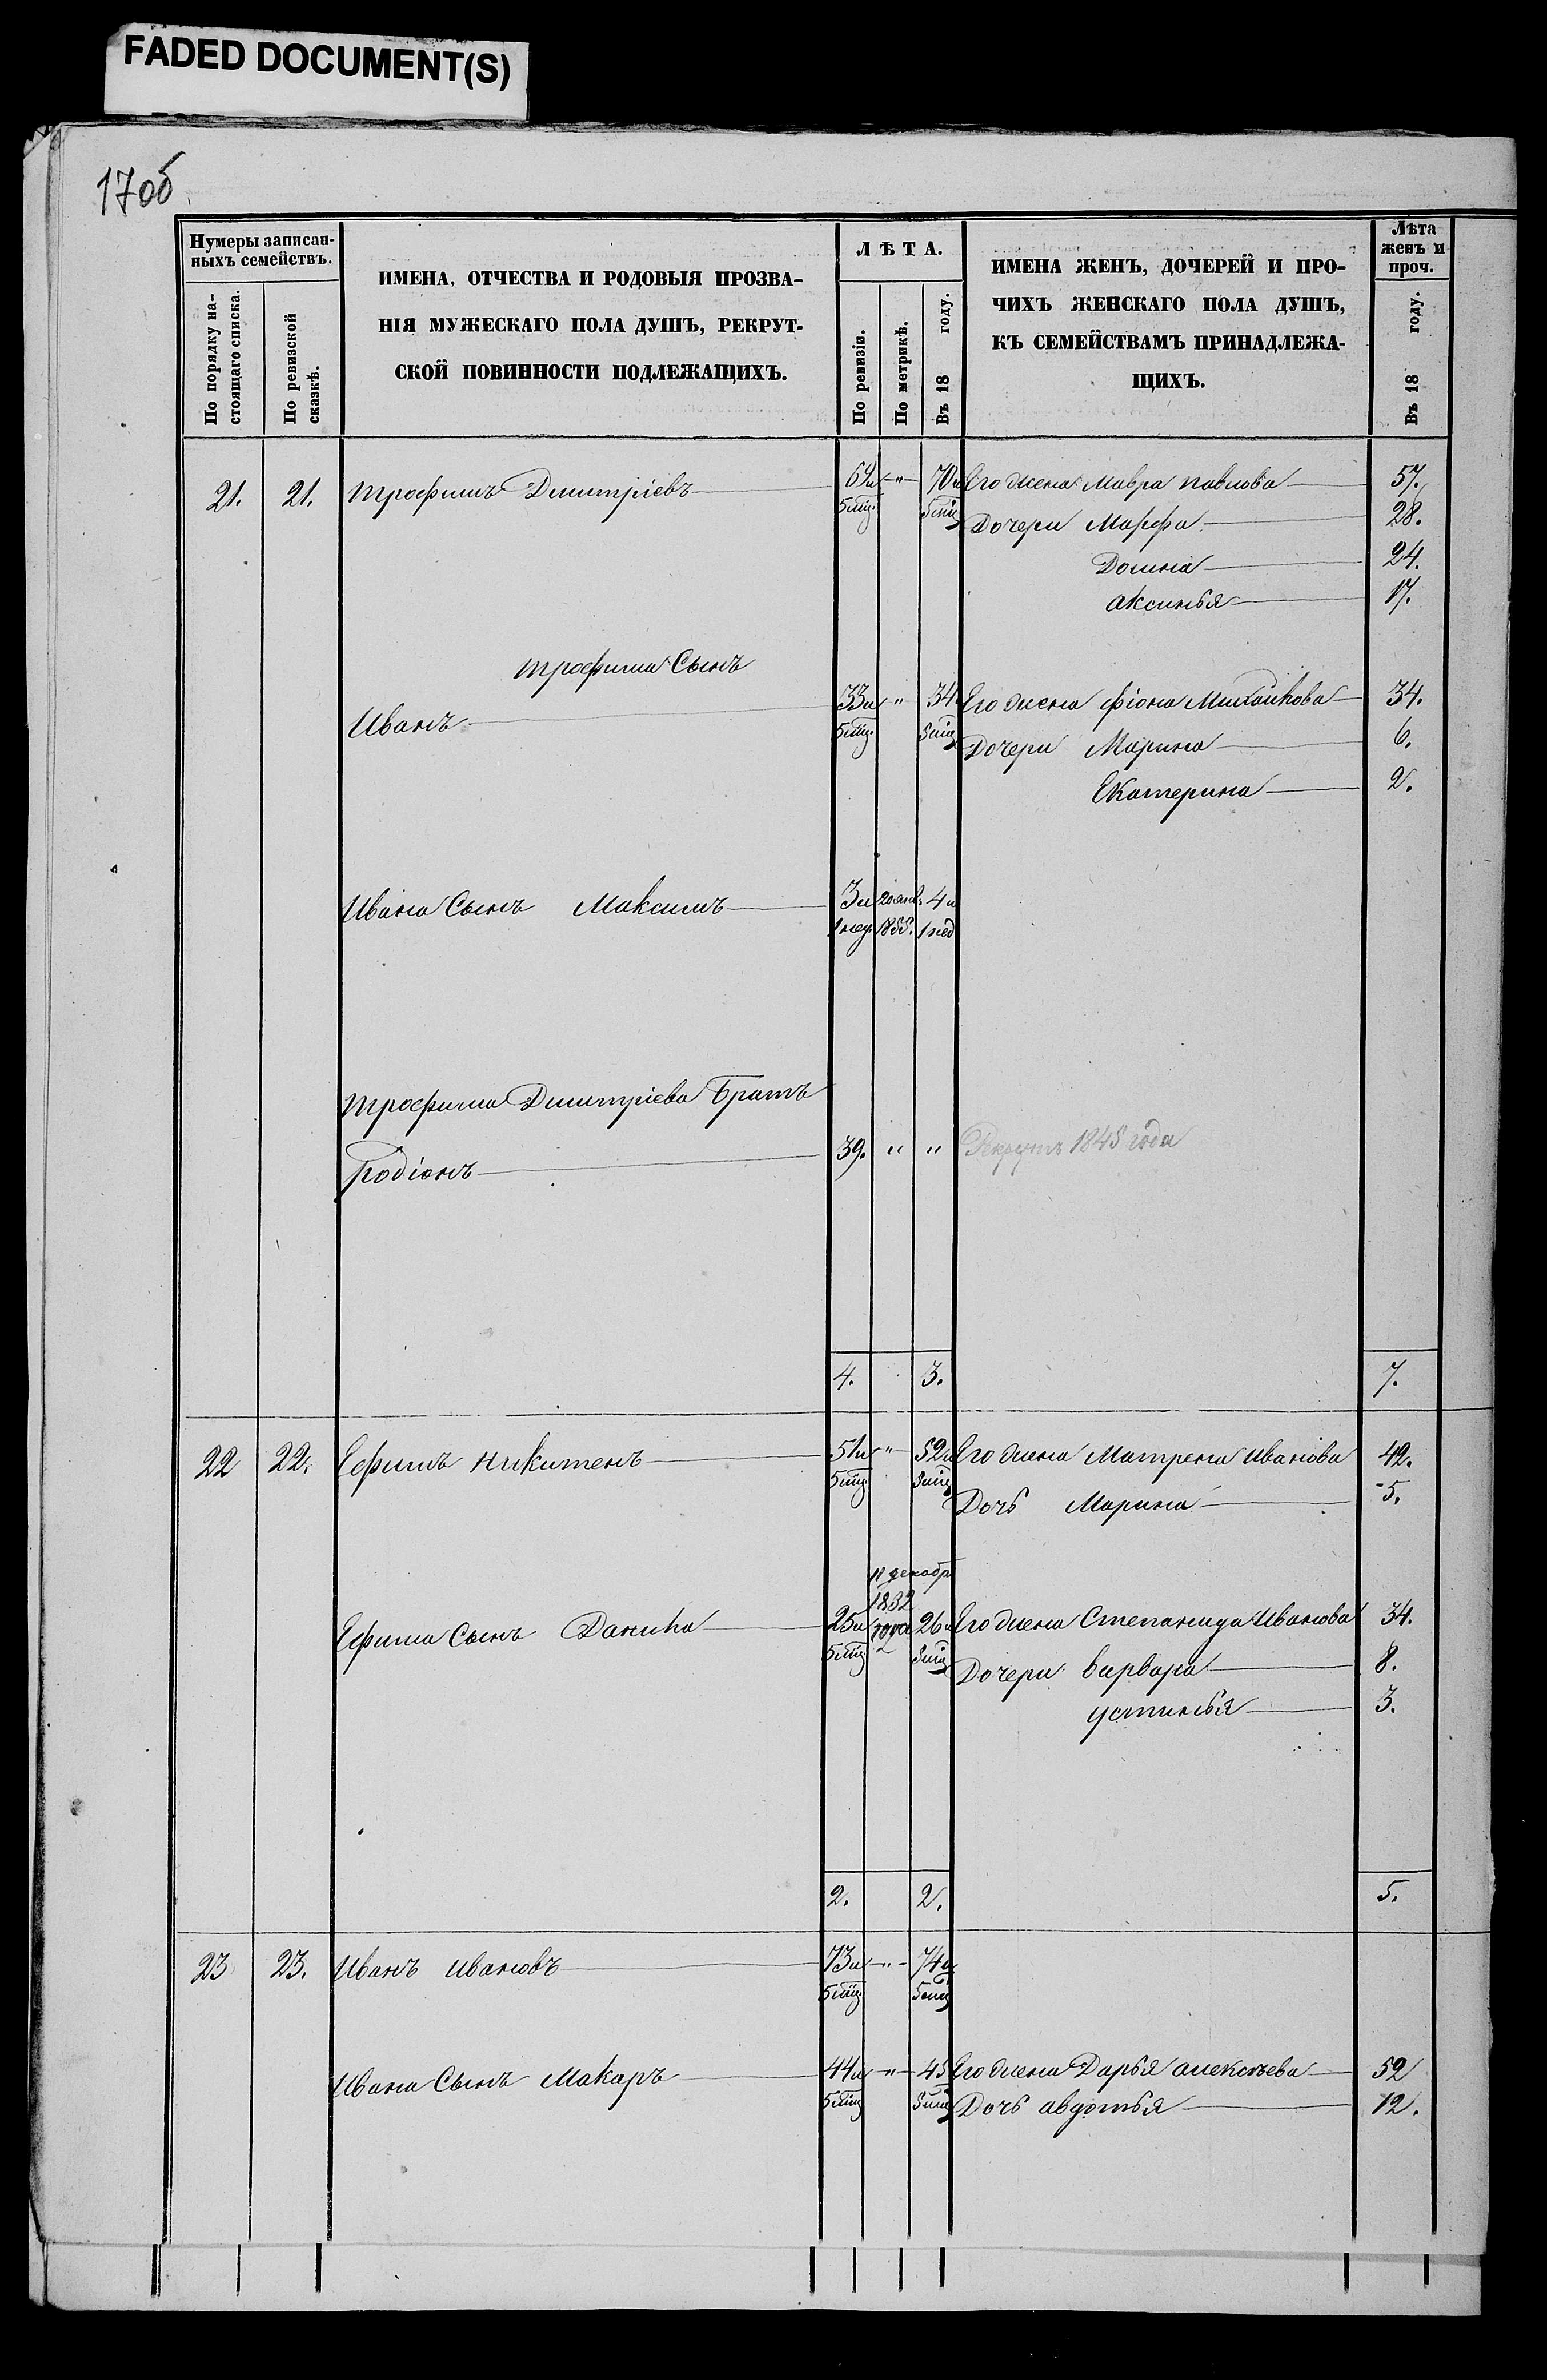 FADED DOCUMENT(S)
17об
Нумеры записан-
ныхъ семействъ.
По порядку на-
стоящаго списка.
По ревизской
сказкѣ.
ИМЕНА, ОТЧЕСТВА И РОДОВЫЯ ПРОЗВА-
НІЯ МУЖЕСКАГО ПОЛА ДУШЪ, РЕКРУТ-
СКОЙ ПОВИННОСТИ ПОДЛЕЖАЩИХЪ.
ЛѢТА.
По ревизіи.
По метрикѣ.
Въ 18 году.
ИМЕНА ЖЕНЪ, ДОЧЕРЕЙ И ПРО-
ЧИХЪ ЖЕНСКАГО ПОЛА ДУШЪ,
КЪ СЕМЕЙСТВАМЪ ПРИНАДЛЕЖА-
ЩИХЪ.
Лѣта
женъ и
проч.
Въ 18 году.
21. 21. трофимъ Дмитріевъ 69и " 70и Его жена Мавра павлова 57.
5мц. 5мц Дочери Марфа 28.
Домна 24.
аксинья 17.
трофима Сынъ
Иванъ 33и " 34и Его жена фіона Михайлова 34.
5мц. 5мц Дочери Марина 6.
Екатерина 2.
Ивана Сынъ Максимъ 3и 20 янв. 4и
1нед. 1855. 1нед
трофима Дмитріева Братъ
родіонъ 39. " " Рекрутъ 1845 года
4. 3. 7.
22 22. Ефимъ никитенъ 51и " 52и Его жена Матрена иванова 42.
5мц 5мц Дочь Марина 5.
Ефима Сынъ Данила 25и 11 декабр 1832 года 26и Его жена Степанида Иванова 34.
5мц 5мц Дочери варвара 8.
устинья 3.
2. 2. 5.
23 23. Иванъ ивановъ 73и " 74и
5мц 5мц
Ивана Сынъ Макаръ 44и " 45 Его жена Дарья алексѣева 52
5мц 5мц Дочь авдотья 12.